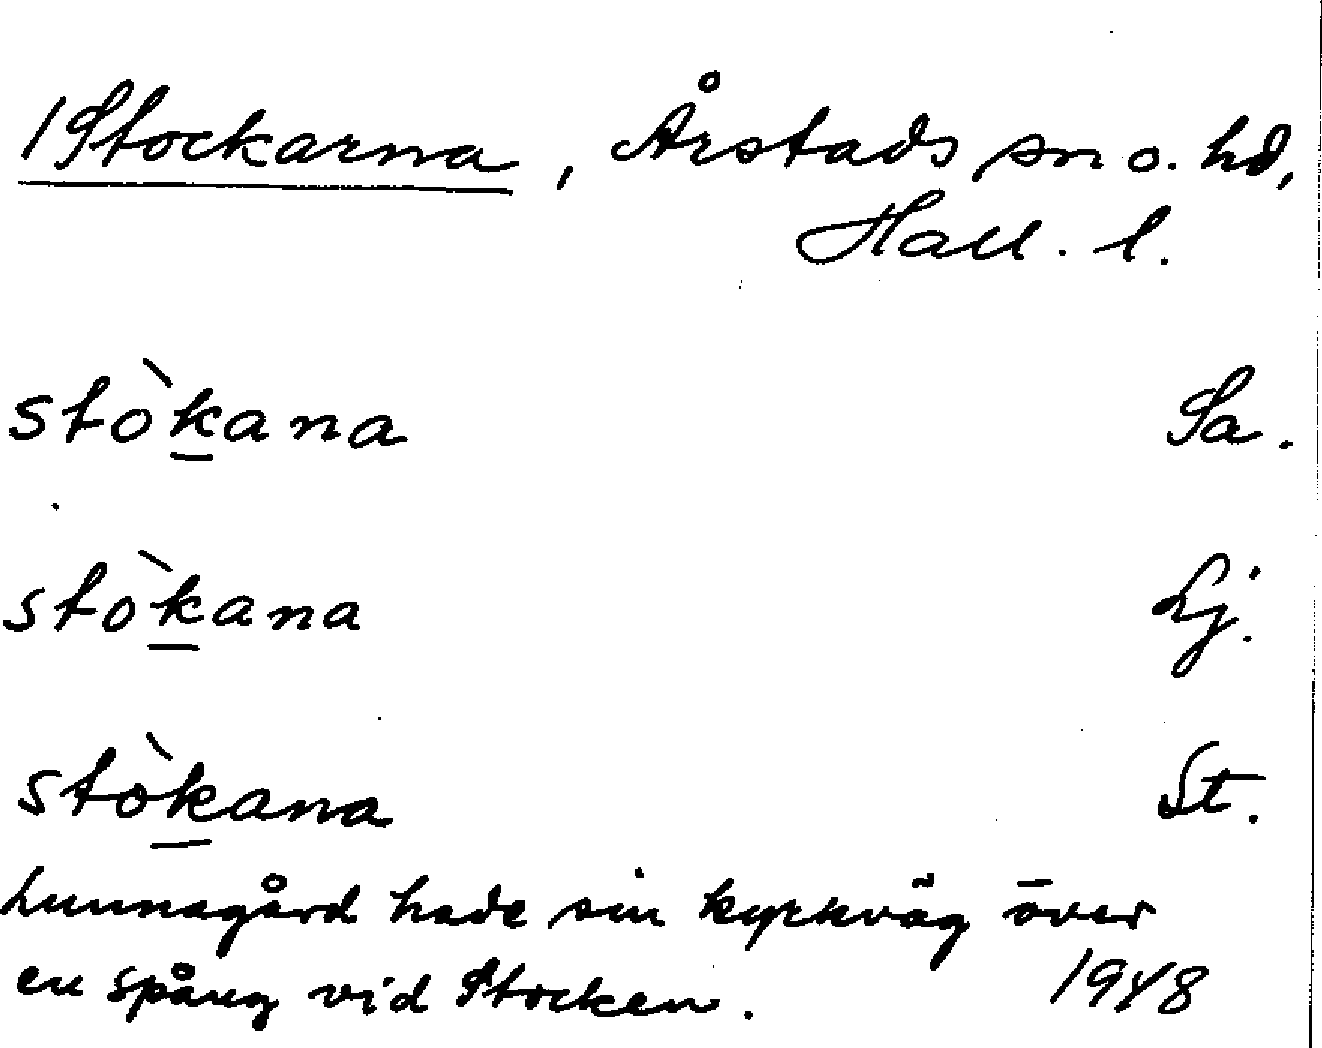 /Stockarna, Årstads sn o. hd,
Hall. l.
stòk̲ana Sa.
stòk̲ana Lj.
stòk̲ana St.
Lunnagård hade sin kyrkväg över
en spång vid Stocken. 1948